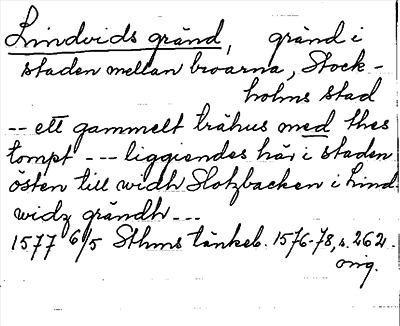 Lindvids gränd, gränd i
staden mellan broarna, Stock-
holms stad
-- ett gammelt trähus med thes
tompt --- liggiendes här i staden
östen till widh Slotzbacken i Lind
widz grändh ---
1577 6/5 Sthms tänkeb. 1576-78, s. 262.
orig.